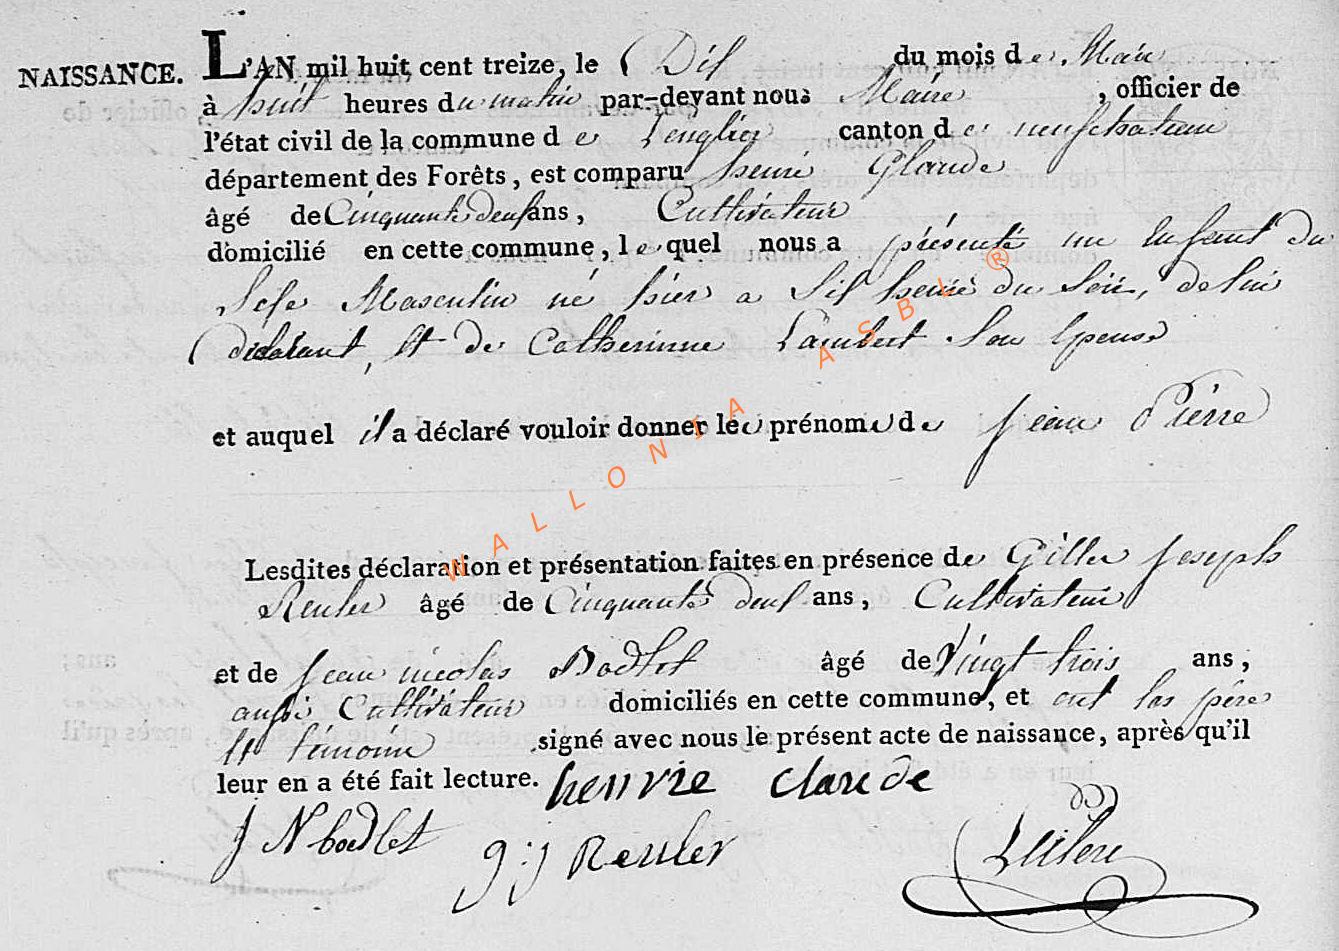 NAISSANCE. L'AN mil huit cent treize, le Dix du mois de Mai
à huit heures du matin par-devant nous Maire , officier de
l'état civil de la commune de Longlier canton de neufchateau
département des Forêts, est comparu henri Glaude
âgé de Cinquante deux ans, Cultivateur
domicilié en cette commune, lequel nous a présenté un Enfant du
Sexe Masculin né hier a Six heure du Soir, de lui
déclarant, et de Catherinne Lambert Son Epouse
et auquel il a déclaré vouloir donner les prénoms de jean Pierre
Lesdites déclaration et présentation faites en présence de Gilles joseph
Reuler âgé de Cinquante deux ans, Cultivateur
et de jean nicolas Bodlet âgé de Vingt trois ans,
aussi Cultivateur domiciliés en cette commune, et ont les père
et temoins signé avec nous le présent acte de naissance, après qu'il
leur en a été fait lecture. henrie claude
J N bodlet g: j Reuler
WALLONIA ASBL ®